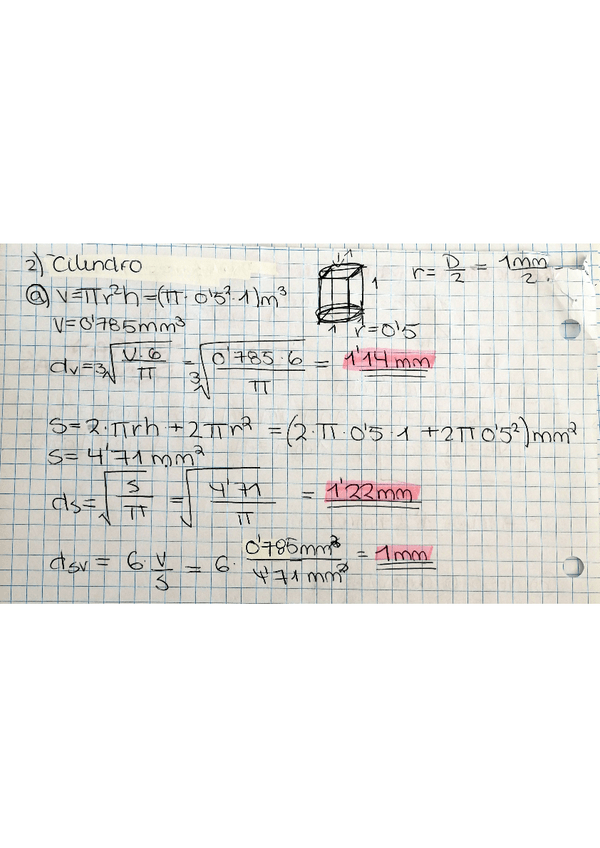 2) Cilindro
r = D/2 = 1mm/2
1'1
1
1 r=0'5
ⓐ V=πr²h=(π·0'5²·1)m³
V=0'785mm³
dv=³√(V·6/π) = ³√(0'785·6/π) = 1'14mm
S=2·πrh+2πr² =(2·π·0'5·1+2π0'5²)mm²
S=4'71mm²
ds=√(S/π) = √(4'71/π) = 1'22mm
dsv = 6·V/S = 6·0'785mm³/4'71mm² = 1mm